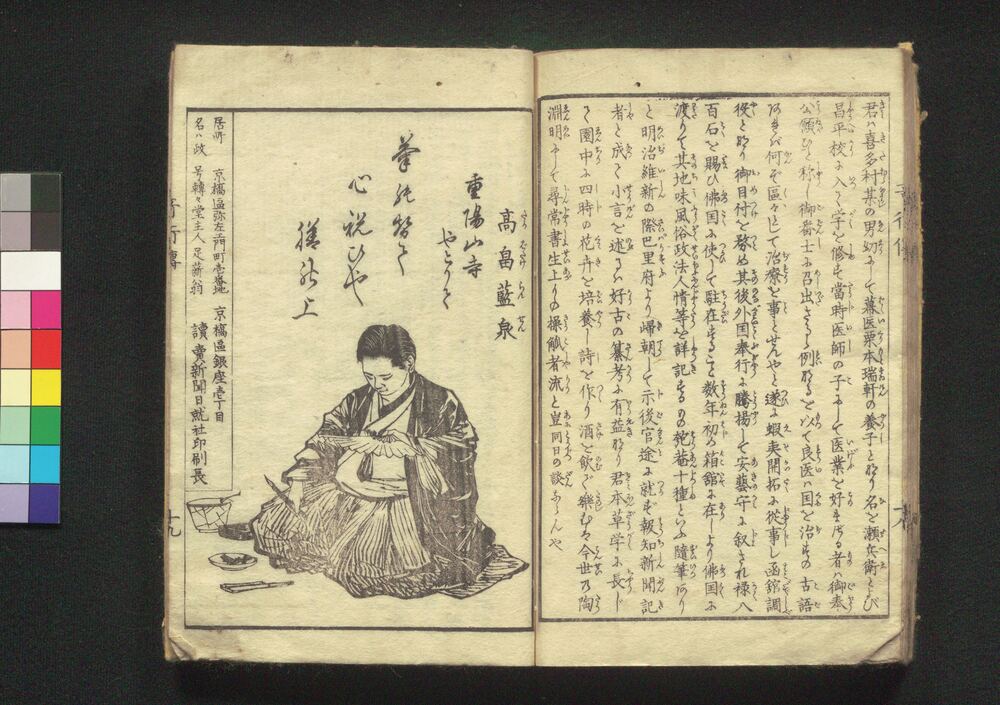 君ハ喜多村某の男幼にして幕医栗本瑞軒の養子と成り名を瀬兵衛とよび
昌平校に入て学を修む當時医師の子にして医業を好まざる者ハ御奉
公願ひと称し御番士に召出さるゝ例なるを以て良医ハ国を治むるの古語
あるに何ぞ區々として治療を事とせんやと遂に蝦夷開拓に從事し函舘調
役と成り御目付を務め其後外国奉行に騰揚して安藝守に叙され禄八
百石を賜ひ佛国に使して駐在すること数年初め箱舘に在しより佛国に
渡りて其地味風俗政法人情等を詳記するの匏菴十種といふ隨筆あり
と明治維新の際巴里府より帰朝して示後官途に就ず報知新聞記
者と成て小言を述るい好古の纂考に有益なり君本草学に長じ
て園中に四時の花卉を培養し詩を作り酒を飲で樂む今世の陶
淵明にして尋常書生上りの操觚者流と豈同日の談ならんや
高畠藍泉
重陽山寺
やとりて
筆
心祝ひや
居所 京橋區弥左エ門町壱番地 京橋區銀座壱丁目
名ハ政 号轉々堂主人足薪翁 讀賣新聞日就社印刷長
十九